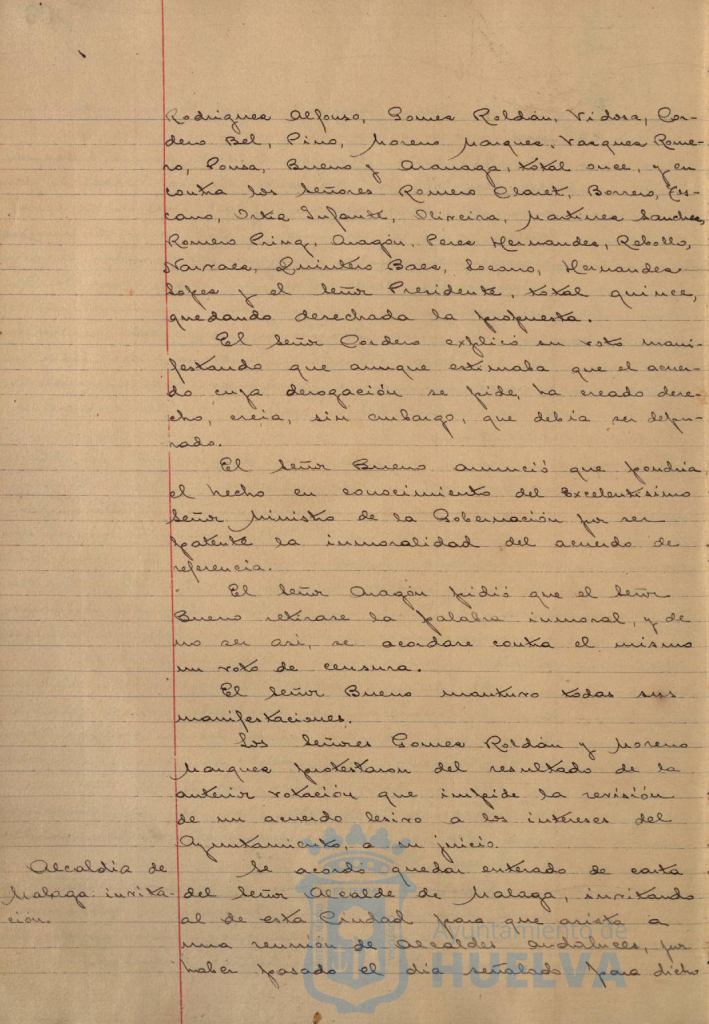 Rodriguez Alfonso, Gomez Roldán, Vidosa, Cor-
dero Bel, Pino, Moreno Marquez, Vazquez Rome-
ro, Ponsa, Bueno y Aranaga, total once, y en
contra los Señores Romero Claret, Borrero, Es-
cano, Orta Infante, Oliveira, Martinez Sanchez,
Romero Pring, Aragón, Perez Hernandez, Rebollo,
Narvaez, Quintero Baez, Locano, Hernandez
Lopez y el Señor Presidente, total quince,
quedando desechada la propuesta.
El Señor Cordero explicó su voto mani-
festando que aunque estimaba que el acuer-
do cuya derogación se pide, ha creado dere-
cho, creia, sin embargo, que debia ser depu-
rado.
El Señor Bueno anunció que pondria
el hecho en conocimiento del Excelentisimo
Señor Ministro de la Gobernación por ser
patente la inmoralidad del acuerdo de
referencia.
El Señor Aragón pidió que el Señor
Bueno retirase la palabra inmoral, y de
no ser asi, se acordare contra el mismo
un voto de censura.
El Señor Bueno mantuvo todas sus
manifestaciones.
Los Señores Gomez Roldán y Moreno
Marquez protestaron del resultado de la
anterior votación que impide la revisión
de un acuerdo lesivo a los intereses del
Ayuntamiento, a su juicio.
Alcaldia de
Malaga: invita-
ción.
Se acordó quedar enterado de carta
del Señor Alcalde de Malaga, invitando
al de esta Ciudad para que asista a
una reunión de Alcaldes andaluces, por
haber pasado el dia señalado para dicho
Ayuntamiento de
HUELVA